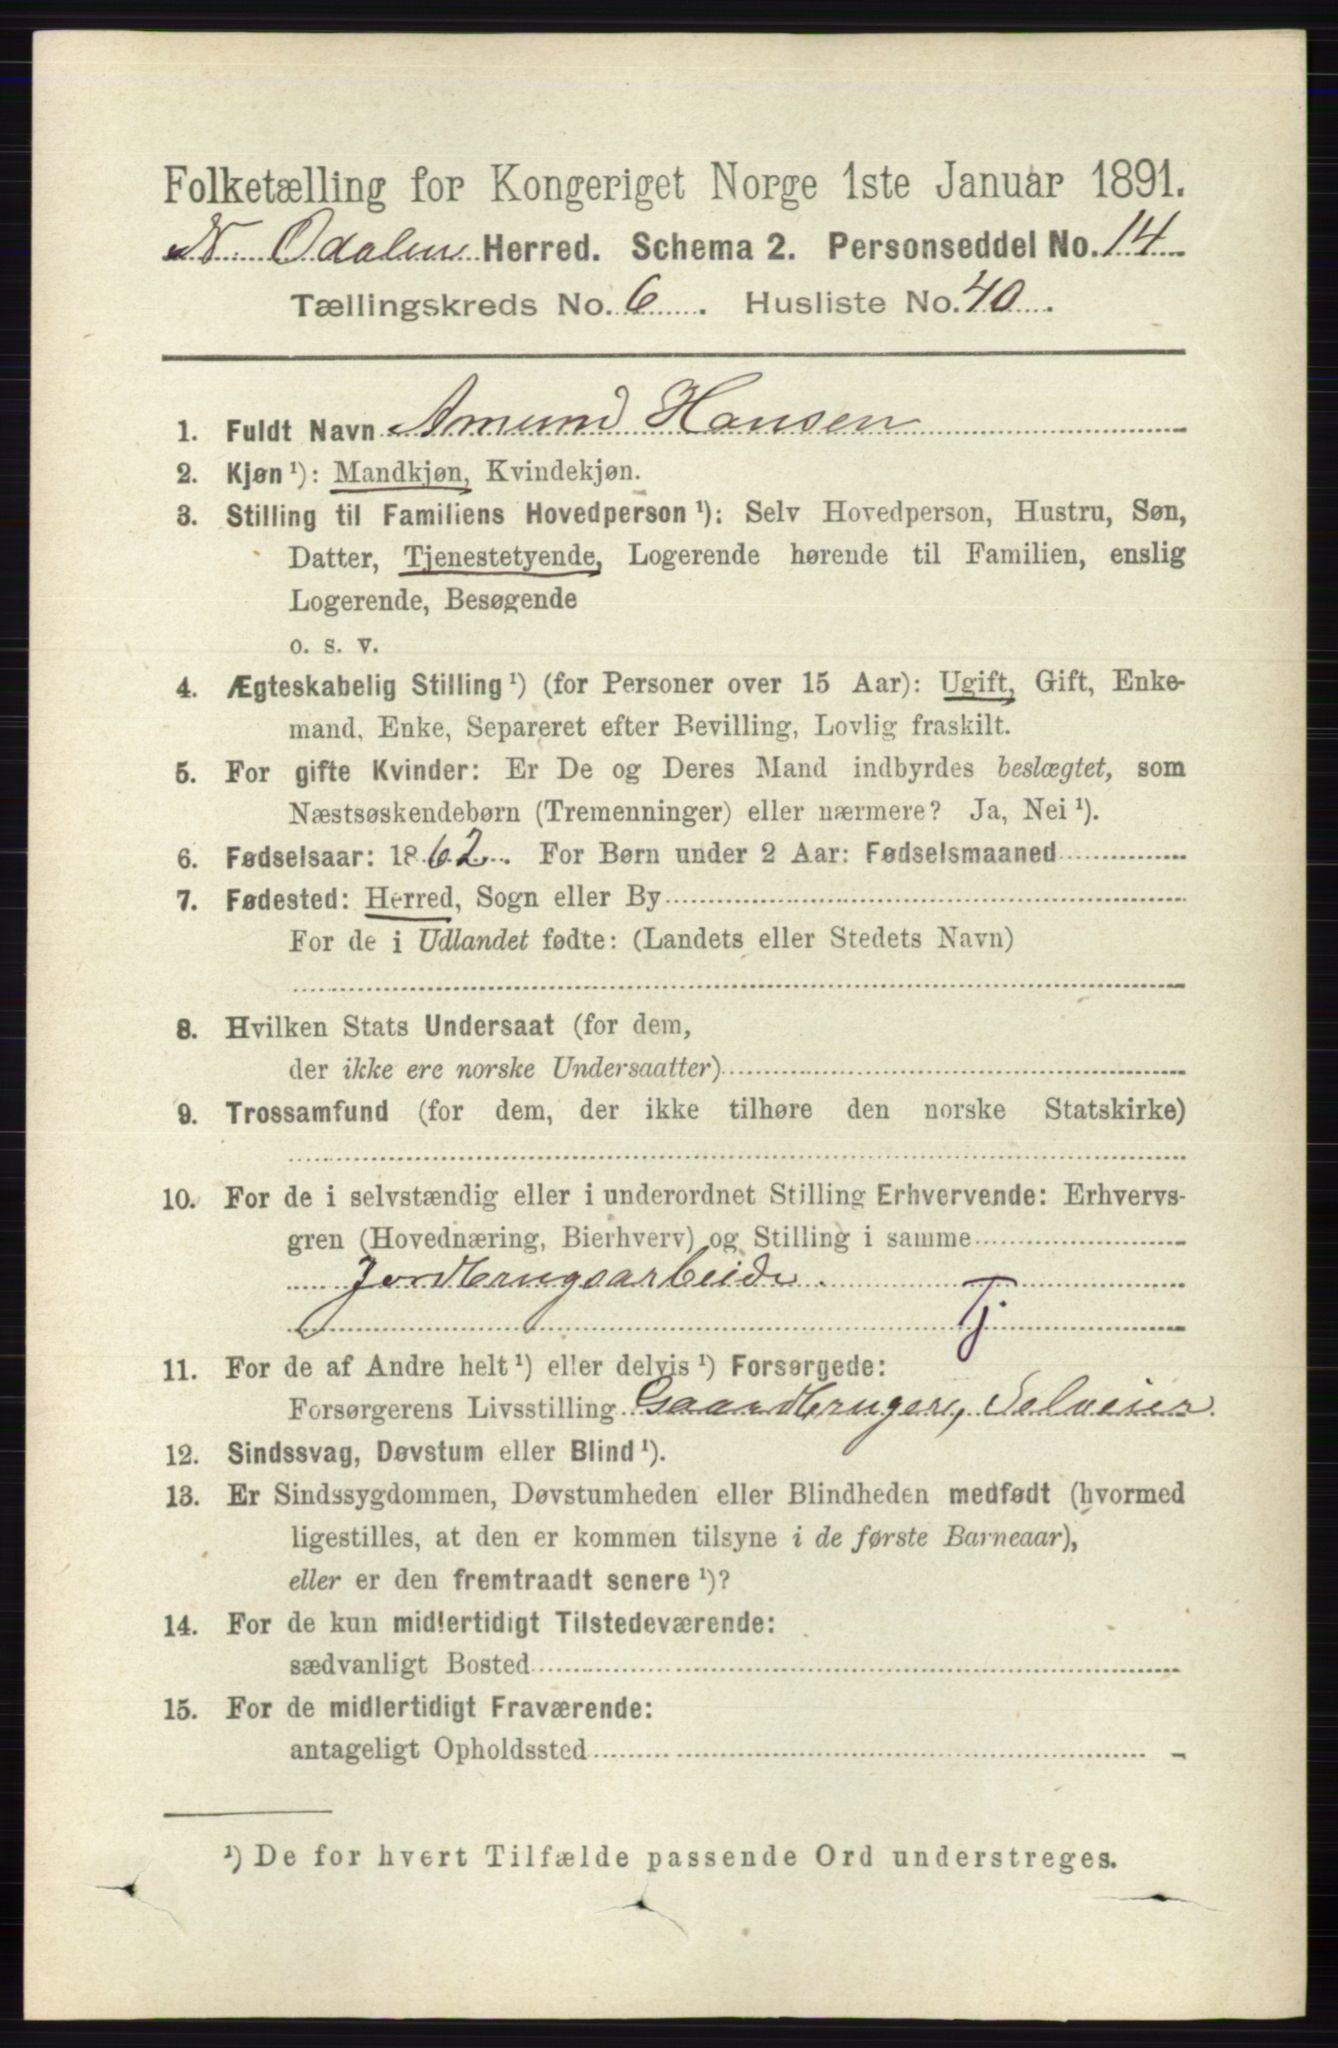 Folketælling for Kongeriget Norge 1ste Januar 1891.
N. Odalen Herred. Schema 2. Personseddel No. 14
Tællingskreds No. 6. Husliste No. 40.
1. Fuldt Navn Amund Hansen
2. Kjøn ¹): Mandkjøn, Kvindekjøn.
3. Stilling til Familiens Hovedperson ¹): Selv Hovedperson, Hustru, Søn,
Datter, Tjenestetyende, Logerende hørende til Familien, enslig
Logerende, Besøgende
o. s. v.
4. Ægteskabelig Stilling ¹) (for Personer over 15 Aar): Ugift, Gift, Enke-
mand, Enke, Separeret efter Bevilling, Lovlig fraskilt.
5. For gifte Kvinder: Er De og Deres Mand indbyrdes beslægtet, som
Næstsøskendebørn (Tremenninger) eller nærmere? Ja, Nei ¹).
6. Fødselsaar: 1862. For Børn under 2 Aar: Fødselsmaaned
7. Fødested: Herred, Sogn eller By
For de i Udlandet fødte: (Landets eller Stedets Navn)
8. Hvilken Stats Undersaat (for dem,
der ikke ere norske Undersaatter)
9. Trossamfund (for dem, der ikke tilhøre den norske Statskirke)
10. For de i selvstændig eller i underordnet Stilling Erhvervende: Erhvervs-
gren (Hovednæring, Bierhverv) og Stilling i samme
Jordbrugsarbeide.
Tj.
11. For de af Andre helt ¹) eller delvis ¹) Forsørgede:
Forsørgerens Livsstilling Gaardbruger, Selveier
12. Sindssvag, Døvstum eller Blind ¹).
13. Er Sindssygdommen, Døvstumheden eller Blindheden medfødt (hvormed
ligestilles, at den er kommen tilsyne i de første Barneaar),
eller er den fremtraadt senere ¹)?
14. For de kun midlertidigt Tilstedeværende:
sædvanligt Bosted
15. For de midlertidigt Fraværende:
antageligt Opholdssted
¹) De for hvert Tilfælde passende Ord understreges.